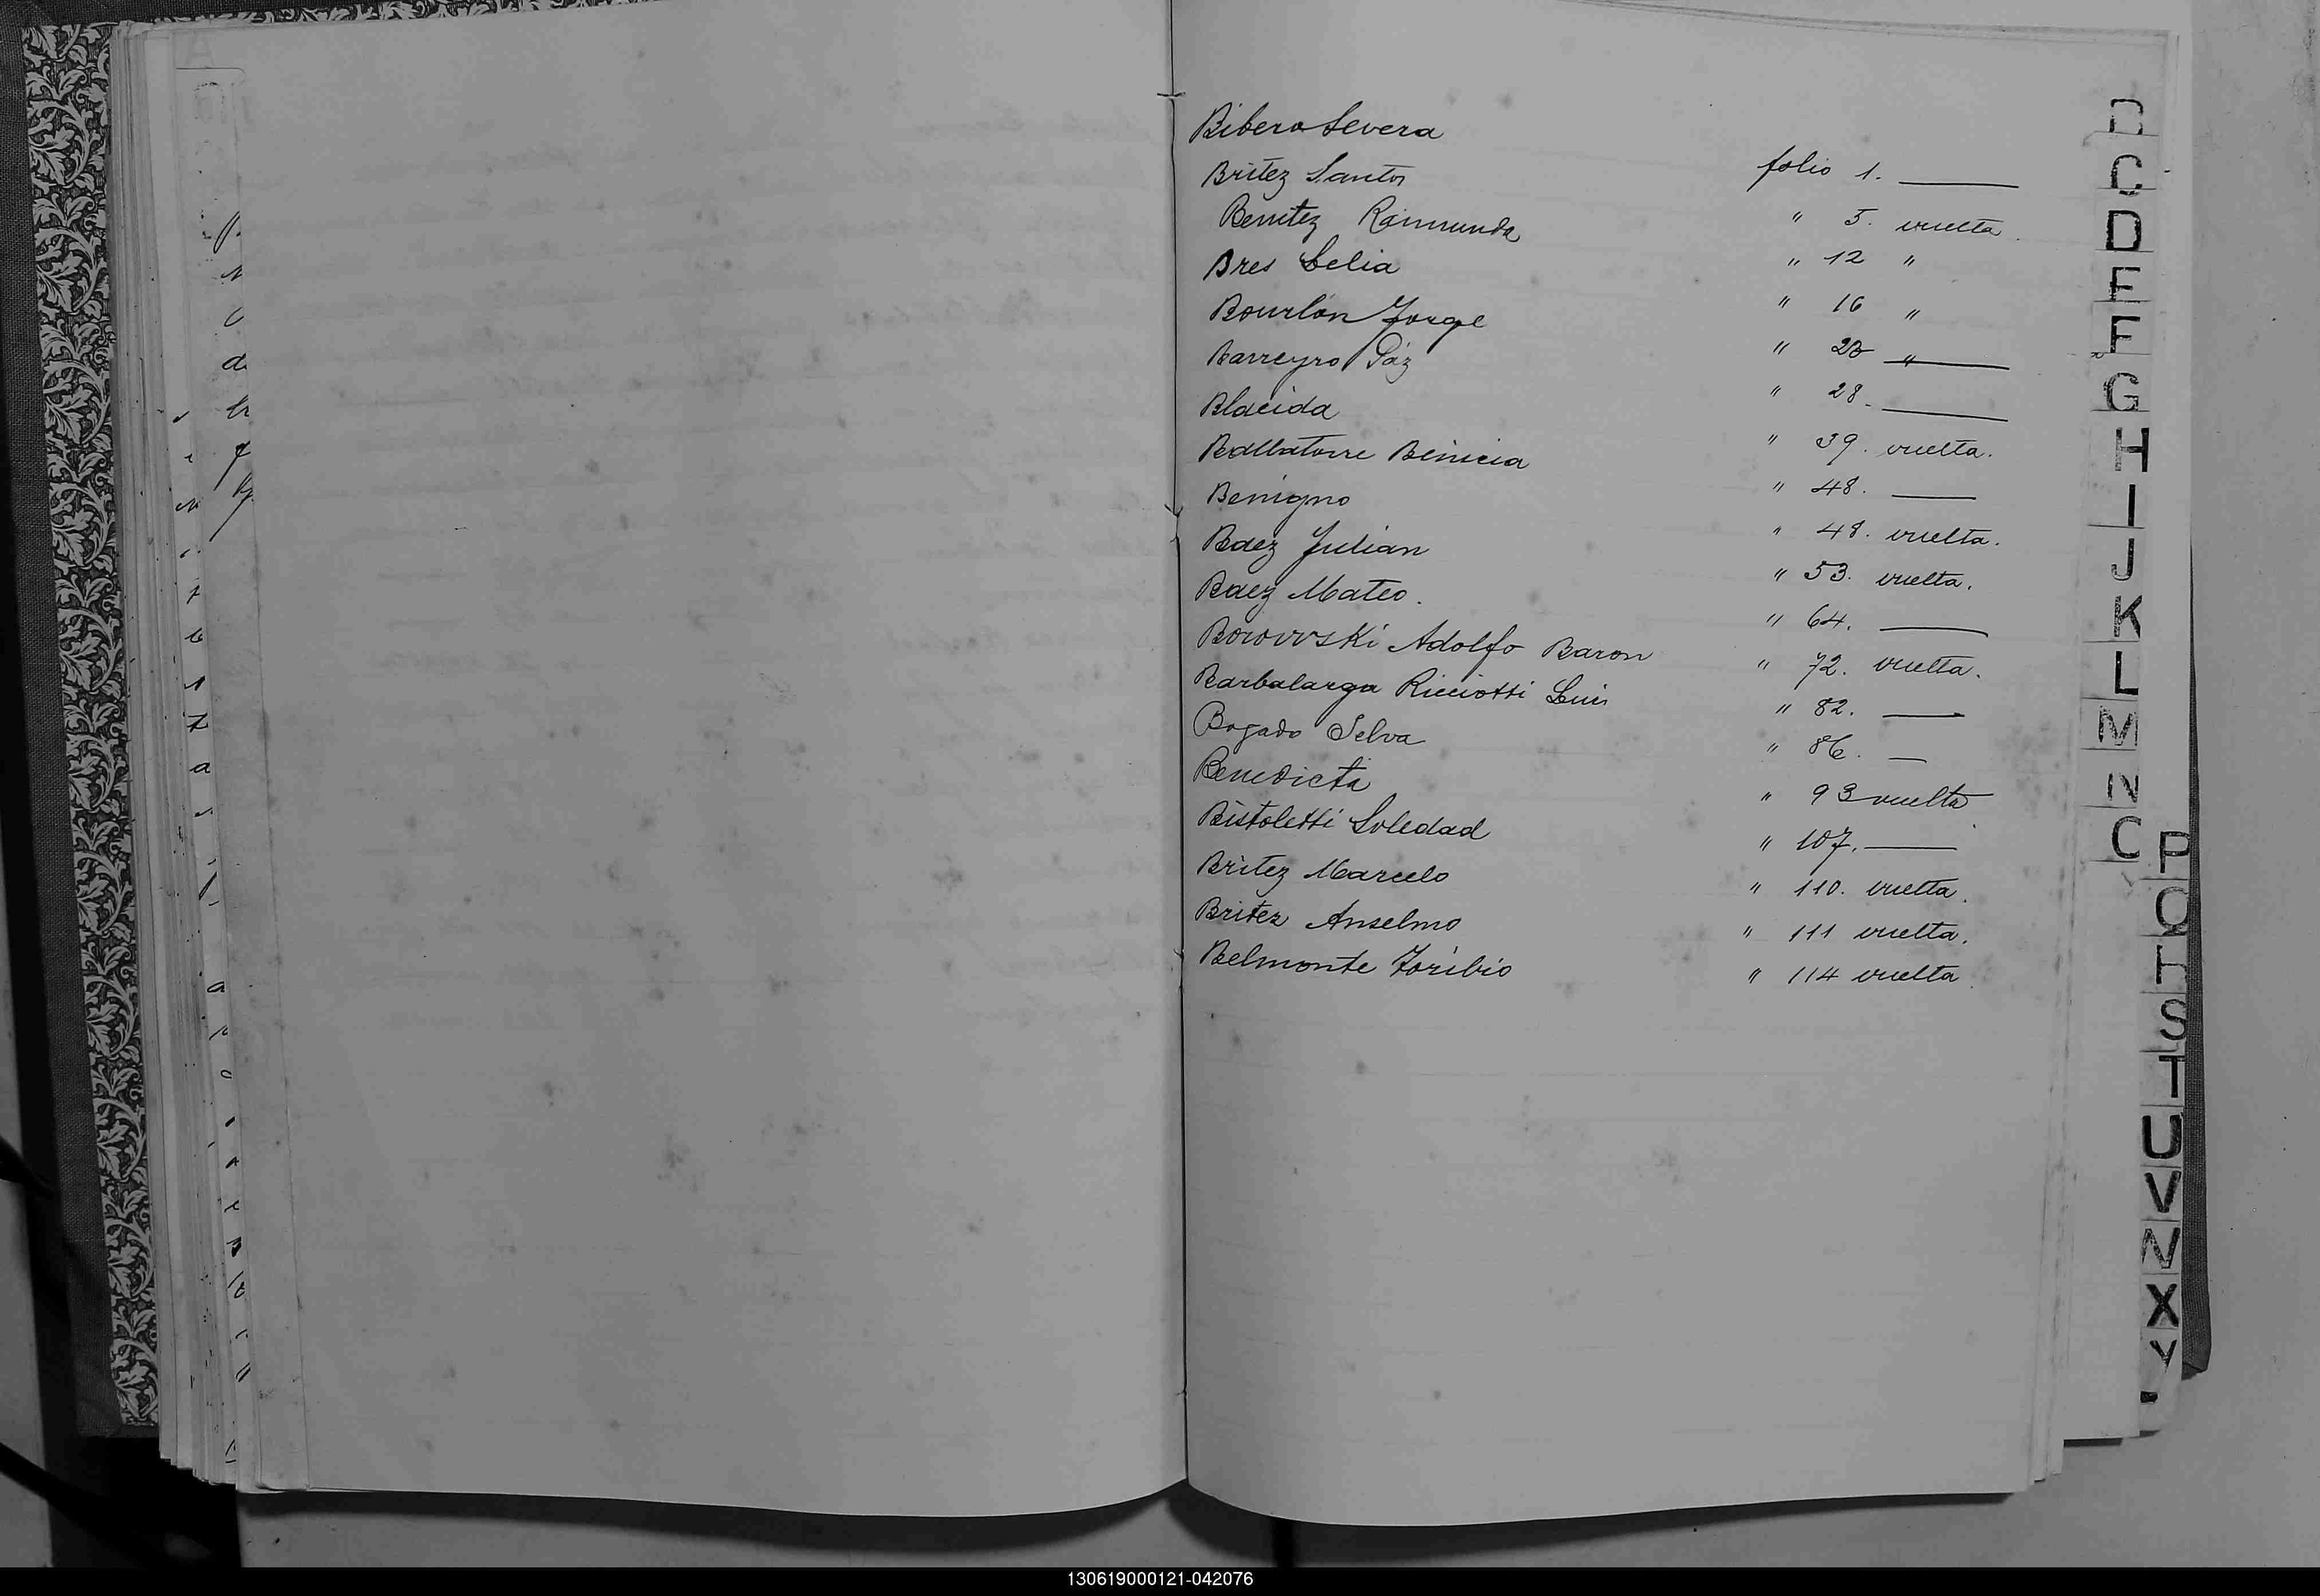 Bibera Severa folio 1. ——
Britez Santos " 5. vuelta
Benitez Raimunda " 12 "
Bres Celia " 16 "
Bourlón Jorge " 23 "
Barreyro Páz " 28. ——
Blacida " 39. vuelta.
Balbatorre Benicia " 48. ——
Benigno " 48. vuelta.
Baez Julian " 53. vuelta.
Baez Mateo. " 64. ——
Borowski Adolfo Baron " 72. vuelta.
Barbalarga Ricciotti Luis " 82. ——
Bogado Selva " 86. —
Benedicta " 93 vuelta
Bistoletti Soledad " 107. ——
Britez Marcelo " 110. vuelta.
Britez Anselmo " 111 vuelta.
Belmonte Toribio " 114 vuelta
C
D
E
F
G
H
I
J
K
L
M
N
P
Q
S
T
U
V
X
Y
130619000121-042076